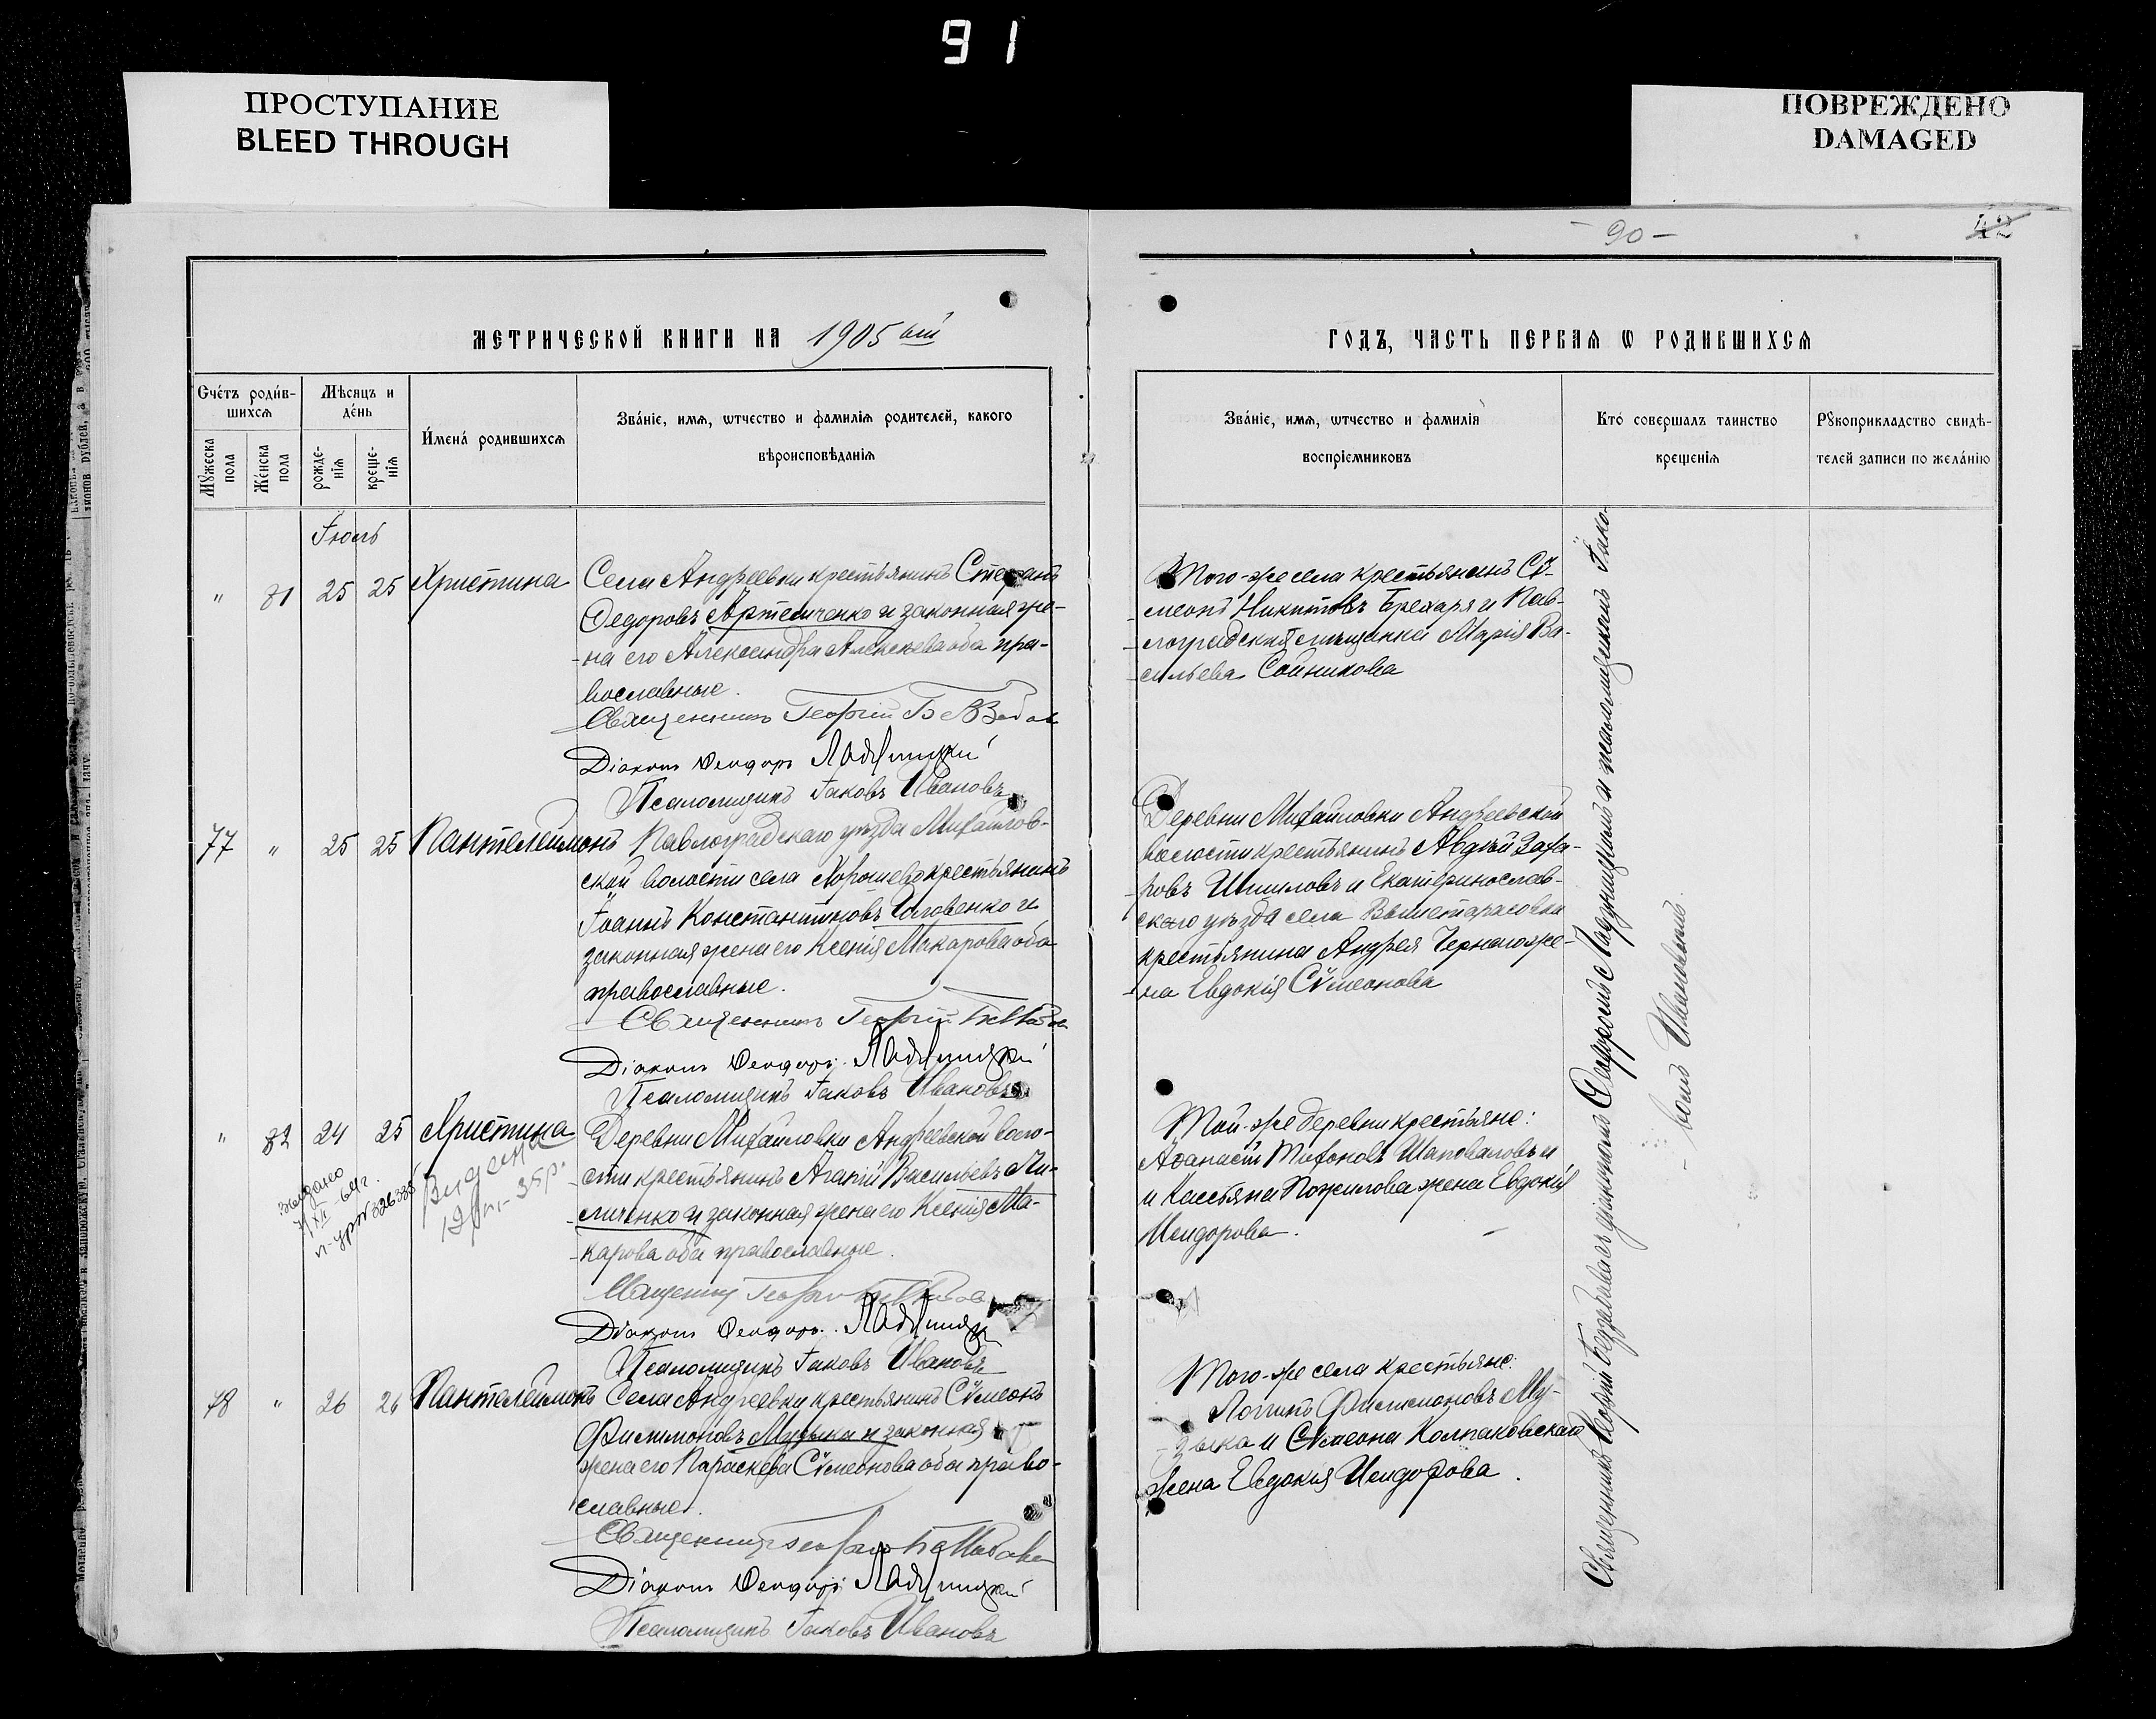 91
ПРОСТУПАНИЕ
BLEED THROUGH
ПОВРЕЖДЕНО
DAMAGED
- 90 -
42
МЕТРИЧЕСКОЙ КНИГИ НА 1905 ый
ГОДЪ, ЧАСТЬ ПЕРВАЯ Ѡ РОДИВШИХСЯ
Счéтъ роди́в-
шихсѧ
Мѣсяцъ и
дéнь
Мꙋ́жеска пола
Жéнска пола
рожде-
нїѧ
креще-
нїѧ
И́мена́ родившихсѧ
Зва́нїе, имѧ, ѡтчество и фамилїѧ родителей, какого
вѣроисповѣданїѧ
Зва́нїе, имѧ, ѡтчество и фамилїѧ
воспрїемниковъ
Кто́ совершалъ таинство
крещенїѧ
Рꙋкоприкладство свидѣ-
телей записи по жела́нїю
Іюль
" 81 25 25 Христина
Села Андреевки крестьянинъ Стефанъ
Ѳедоровъ Артемченко и законная же-
-на его Александра Алексѣева оба пра-
вославные.
Священникъ Георгій
Діаконъ Ѳеодоръ
Псаломщикъ Іаковъ Ивановъ
Того-же села крестьянинъ Сѵ-
меонъ Никитовъ Брехаря и Пав-
-лоградская мѣщанка Марія Ва-
-сильева Сойникова
77 " 25 25 Пантелеимонъ
Павлоградскаго уѣзда Михайлов-
ской волости села Хорошево крестьянинъ
Іоаннъ Константиновъ Головенко и
законная жена его Ксенія Макарова оба
православные.
Священникъ Георгій
Діаконъ Ѳеодоръ
Псаломщикъ Іаковъ Ивановъ
Деревни Михайловки Андреевской
волости крестьянинъ Авдѣй Заха-
-ровъ Шпиловъ и Екатеринослав-
скаго уѣзда села Вышетарасовки
крестьянина Андрея Чернаго же-
-на Евдокія Сѵмеонова
" 82 24 25 Христина
Деревни Михайловки Андреевской воло-
сти крестьянинъ Агапій Васильевъ Пи-
-личенко и законная жена его Ксенія Ма-
-карова оба православные.
Священникъ Георгій
Діаконъ Ѳеодоръ
Псаломщикъ Іаковъ Ивановъ
Той-же деревни крестьяне:
Аѳанасій Тихоновъ Шаповаловъ и
и Кассіяна Пожилова жена Евдокія
Исидорова.
78 " 26 26 Пантелеимонъ
Села Андреевки крестьянинъ Сѵмеонъ
Филимоновъ Музыка и законная
жена его Параскева Сѵмеонова оба право-
славные.
Священникъ Георгій
Діаконъ Ѳеодоръ
Псаломщикъ Іаковъ Ивановъ
Того-же села крестьяне:
Логинъ Филимоновъ Му-
-зыка и Сѵмеона Колпаковскаго
жена Евдокія Исидорова.
Священникъ Георгій съ діакономъ Ѳеодоромъ и псаломщикомъ Іако-
-вомъ Ивановымъ